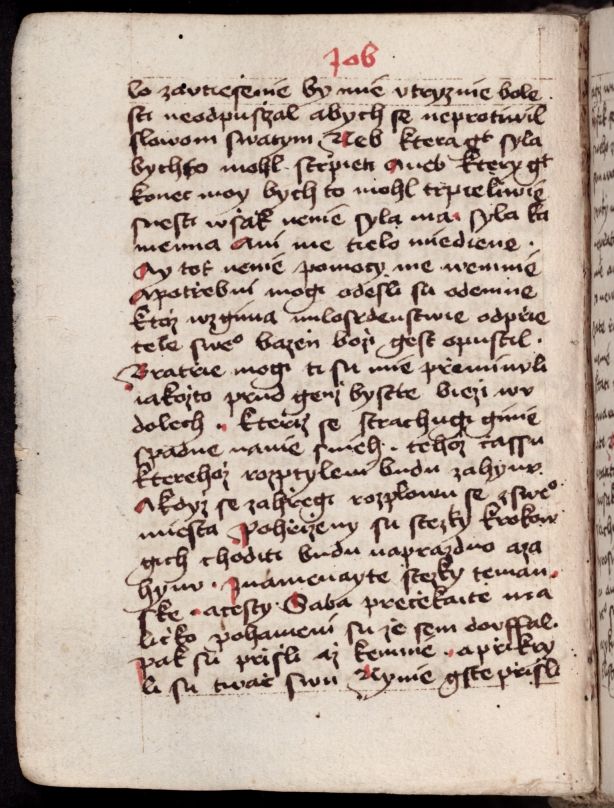 Job
lo zavtiešenie by mie vtryznie bole
sti neodpuszal abych se neprotiwil
slowom swatym Neb ktera gt syla
bychto mohl strpieti aneb ktery gt
konec moy bych to mohl trpieliwie
snesti wšak nenie syla ma syla ka
menna Ani me tielo miediene .
Ay tot nenie pomocy me wemnie
Apotřebni mogi odešli su odemne
ktož wzgima milosrdenstwie odprie
tele sweo bazen boži gest opustil .
Bratrie mogi ti su mie preminuli
iakožto prud genž bystře biezi wv
dolech . kteřiz se strachugi ginie
spadne nanie snieh . tehož cassu
kterehož rozptyleni budu zahynv
Akdyž se zahřegi rozplowu se zsweo
miesta Pohřiženy su stezky krokow
gich choditi budu naprazdno aza
hynv . Znamenayte stezky teman
ske . acesty Saba prečekaite ma
ličko pohaneni su že sem dovffal .
pak su prišli až kemnie . a přikry
li su twař swu Nynie gste prišli